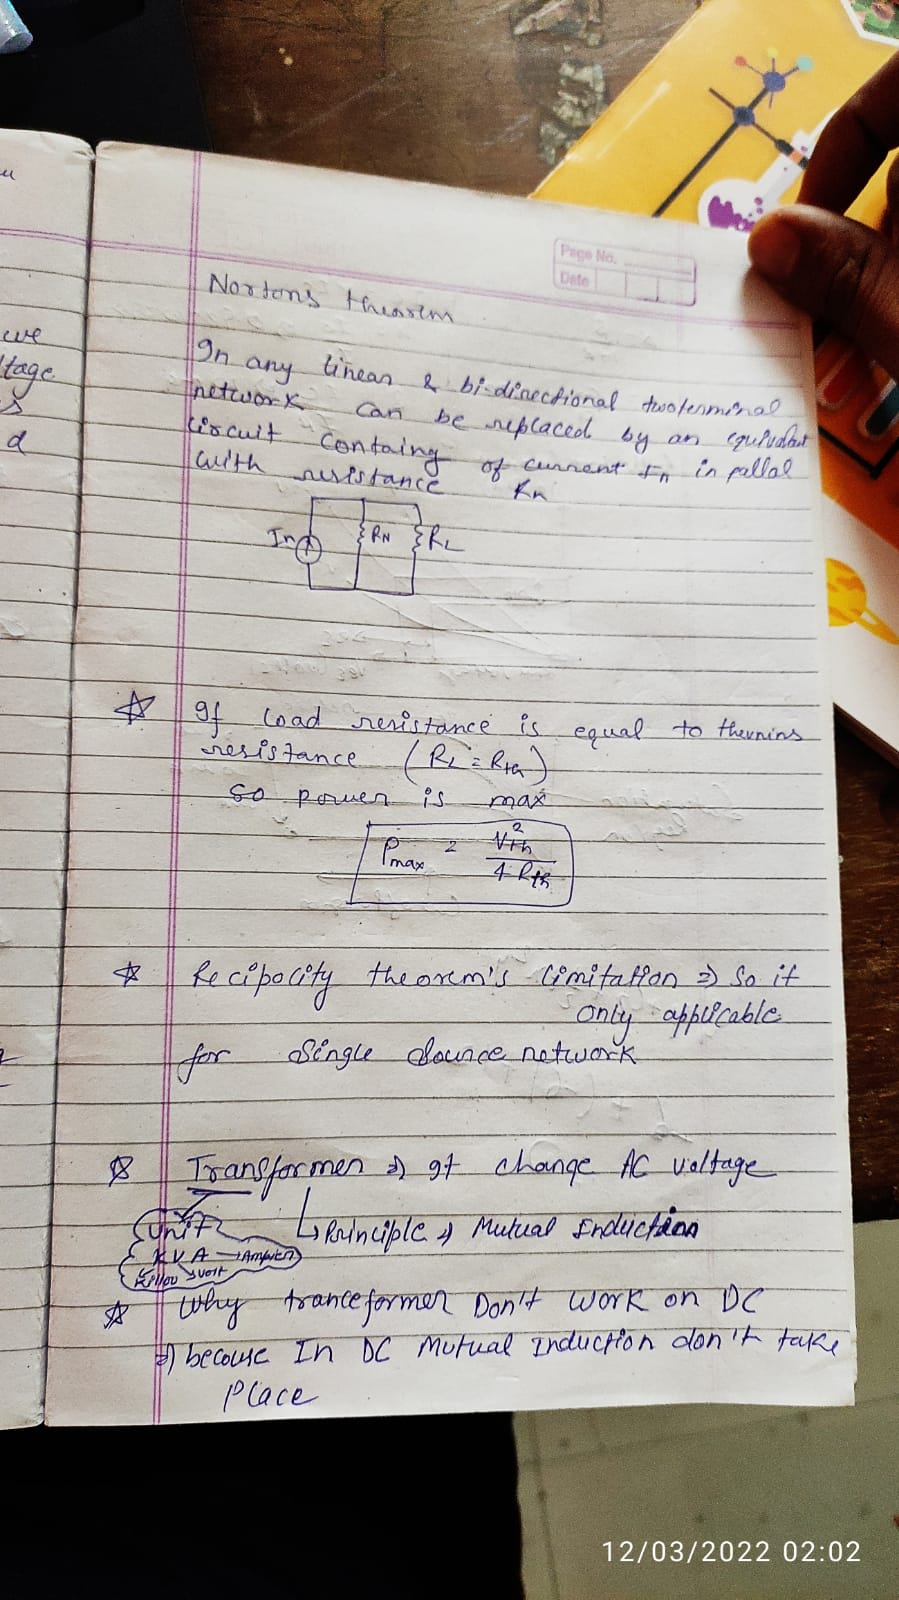 u
Page No.
Date
Nortons theorem
we
ltage
s
d
In any linear & bi-directional twoterminal
network can be replaced by an equivalent
circuit containg of current In in pallal
with resistance Rn
In RN RL
☆ If Load resistance is equal to thevnins
resistance (RL = Rth)
so power is max
Pmax = Vth² / 4 Rth
☆ Recipocity theorem's limitation ⇒ So it
only applicable
for single source network
☆ Transformer ⇒ It change AC voltage
Unit ↳ Principle ⇒ Mutual Induction
KVA → Ampier
Killou ↘ volt
☆ Why tranceformer Don't work on DC
⇒) becouse In DC Mutual Induction don't take
Place
12/03/2022 02:02